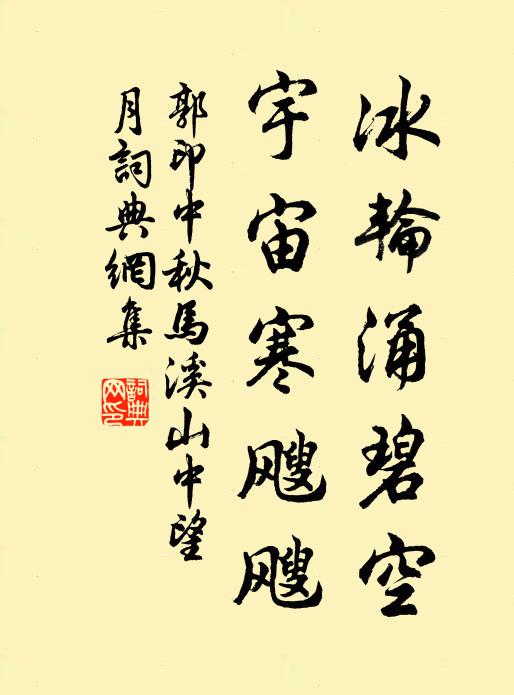 冰輪涌碧空
宇宙寒颼颼
郭印中秋馬溪山中望
月詞典網集
詞典
网印